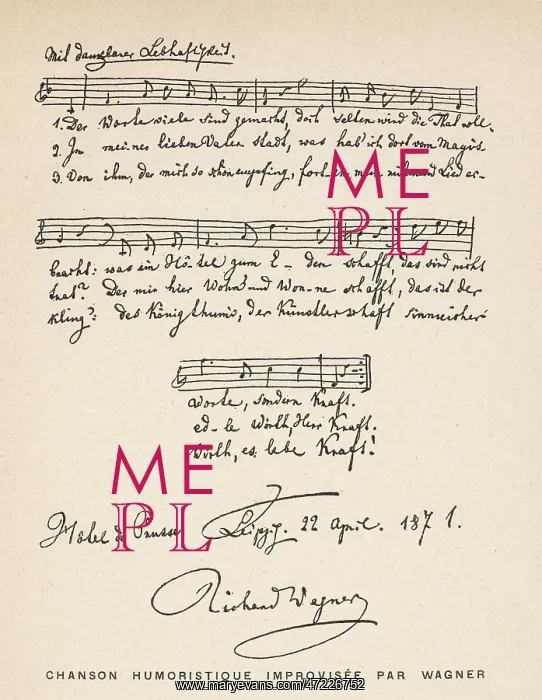 Mit dankbarer Lebhaftigkeit.
1. Der Worte viele sind gemacht, doch selten wird die That voll-
2. In meines lieben Vaters Stadt, was hab' ich dort vom Magis-
3. Von ihm, der mich so schön empfing, fort-an mein Lied er-
ME
PL
bracht: was ein Hô-tel zum E- den schafft, das sind nicht
trat? Der mir hier Wohn' und Won-ne schafft, das ist der
kling': des Königthums, der Künstlerschaft
Worte, sondern Kraft.
ed-le Wirth, Herr Kraft.
Wirth, es lebe Kraft!
ME
PL
Hôtel de Prusse Leipzig. 22 April. 1871.
Richard Wagner
CHANSON HUMORISTIQUE IMPROVISÉE PAR WAGNER
www.maryevans.com/47226752